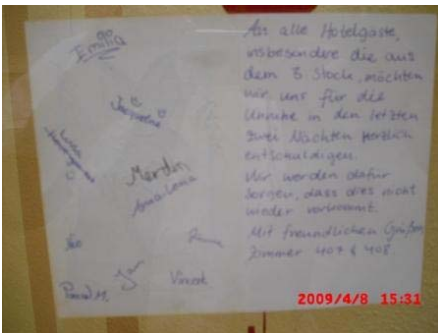 Emilia
Jacqueline
Merdin
Anna-Lena
Leo
Jan
Vincent
Pascal M.
An alle Hotelgäste,
insbesondere die aus
dem 3 Stock, möchten
wir uns für die
Unruhe in den letzten
zwei Nächten herzlich
entschuldigen.
Wir werden dafür
sorgen, dass dies nicht
wieder vorkommt.
Mit freundlichen Grüßen
Zimmer 407 & 408
2009/4/8 15:31